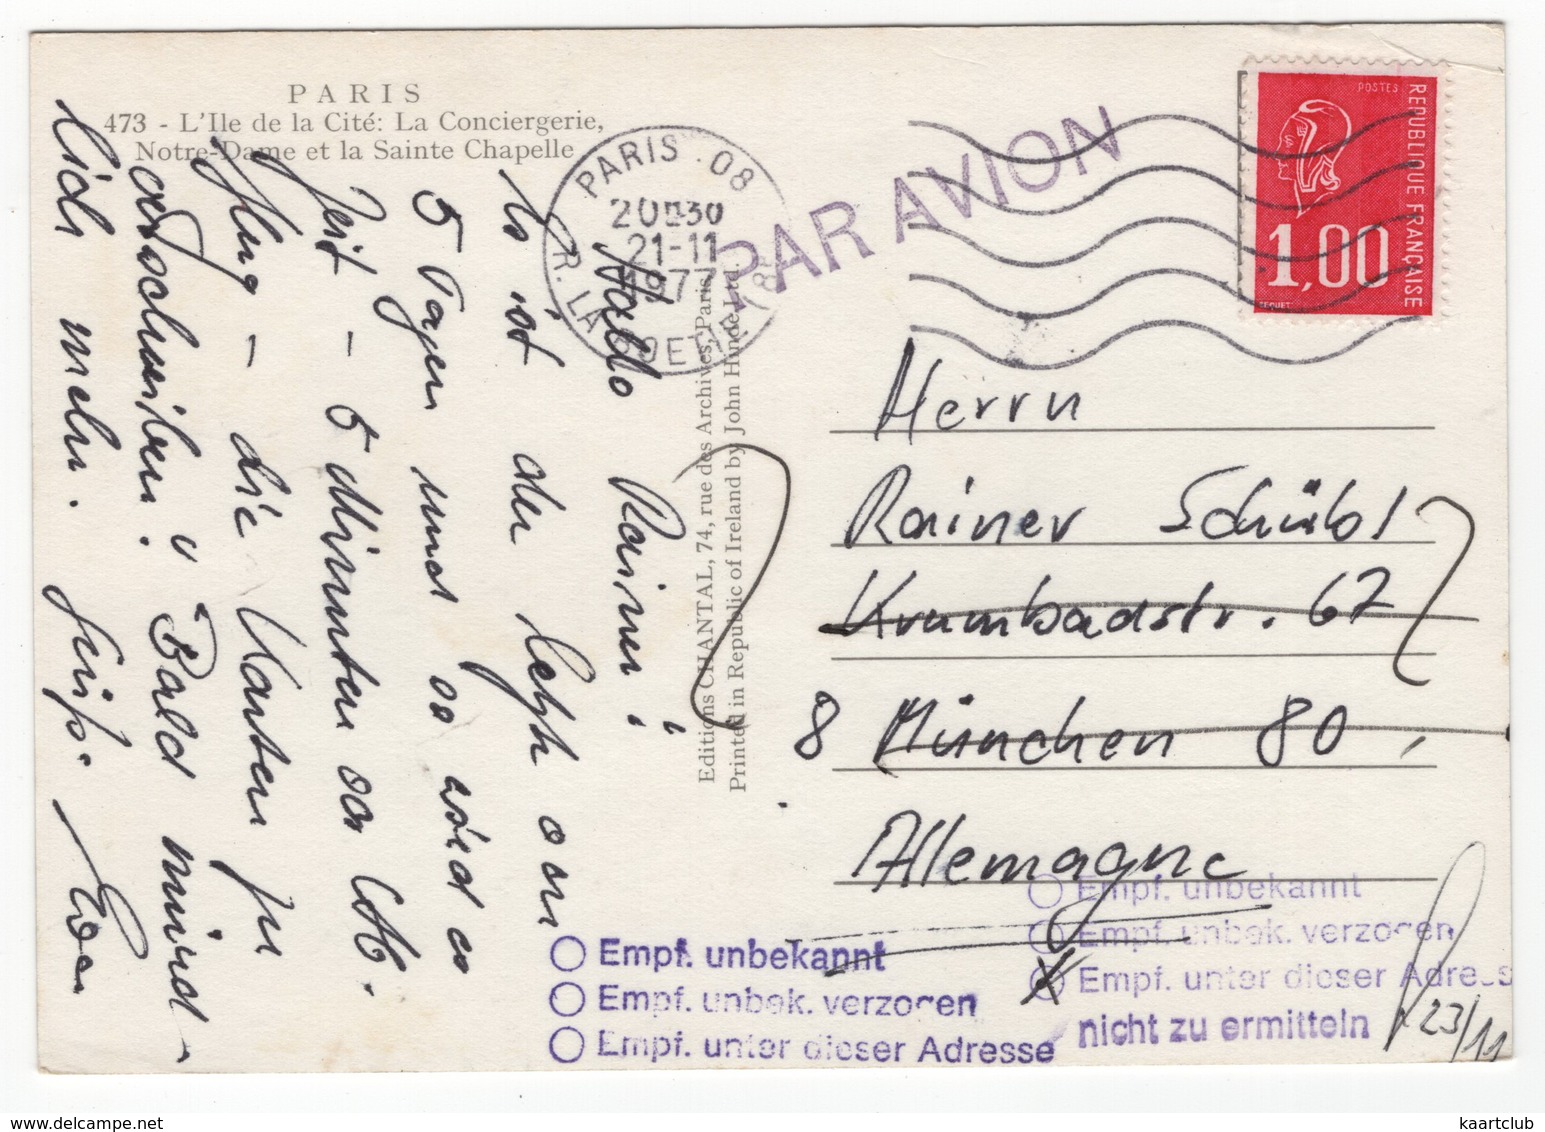 PARIS
473 - L'Ile de la Cité: La Conciergerie,
Notre-Dame et la Sainte Chapelle
PARIS . 08
21-11
1977
R. LA BOETIE (8e)
PAR AVION
POSTES
REPUBLIQUE FRANÇAISE
1,00
Editions CHANTAL, 74, rue des Archives, Paris
Printed in Republic of Ireland by John Hinde Ltd.
Hallo Rainer!
Es ist der letzte von
5 Tagen und es wird
Zeit - 5 Minuten vor
Flug - die Karten zu
Bald
sich mehr. Gruß.
Herrn
Rainer Schübl
Krumbadstr. 67
8 München 80,
Allemagne
Empf. unbekannt
Empf. unbek. verzogen
Empf. unter dieser Adresse
Empf. unbekannt
Empf. unbek. verzogen
Empf. unter dieser Adress
nicht zu ermitteln
23/11
kaartclub
www.delcampe.net